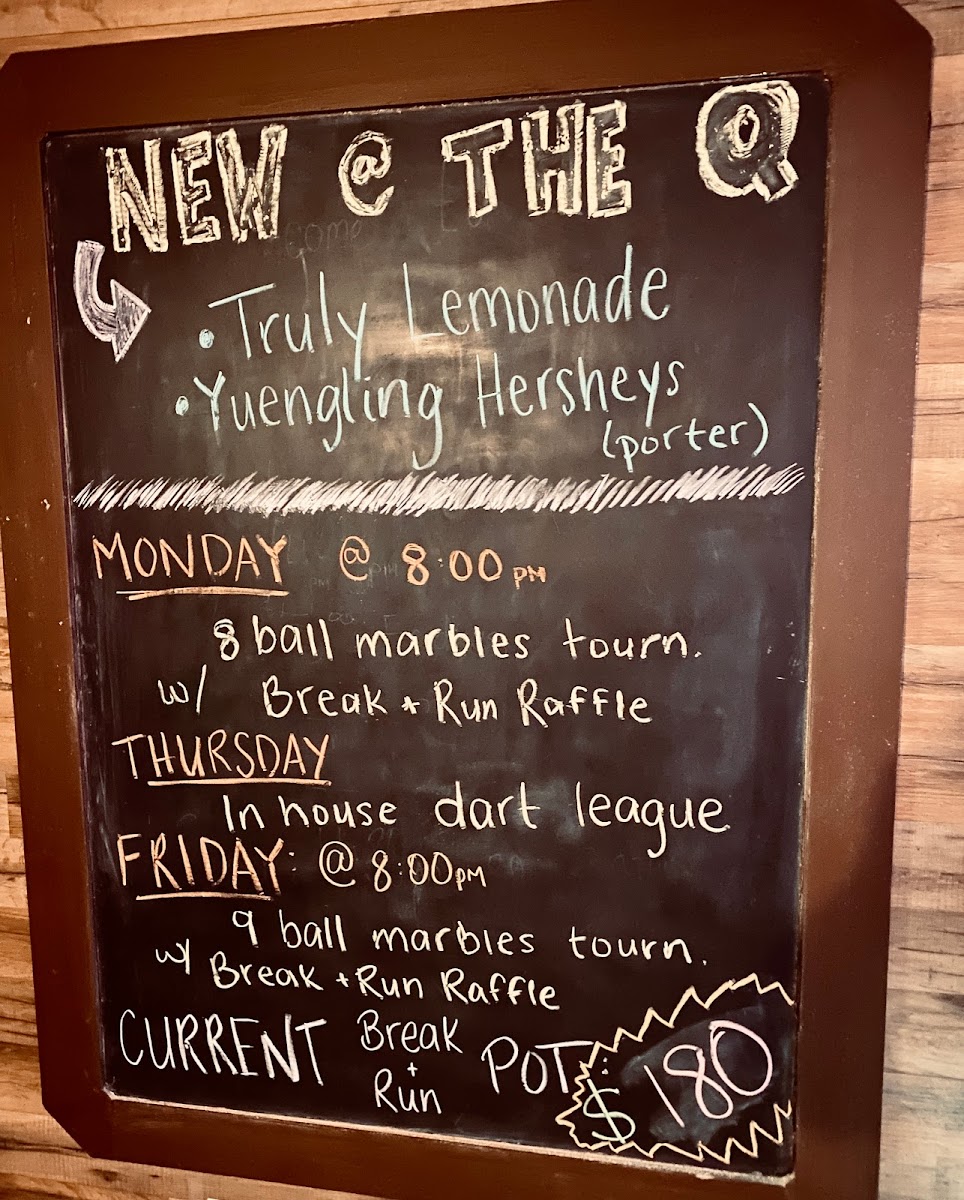 NEW @ THE Q
• Truly Lemonade
• Yuengling Hersheys
(porter)
MONDAY @ 8:00 PM
8 ball marbles tourn.
w/ Break + Run Raffle
THURSDAY
In house dart league
FRIDAY: @ 8:00 PM
9 ball marbles tourn.
w/ Break + Run Raffle
CURRENT Break + Run POT: $180